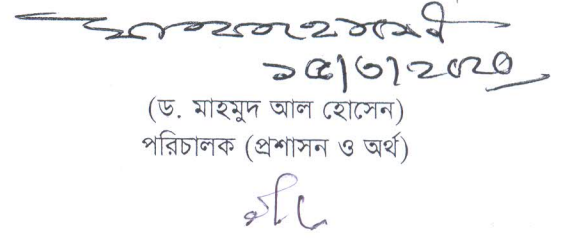 ১৫/৩/২০২০
(ড. মাহমুদ আল হোসেন)
পরিচালক (প্রশাসন ও অর্থ)